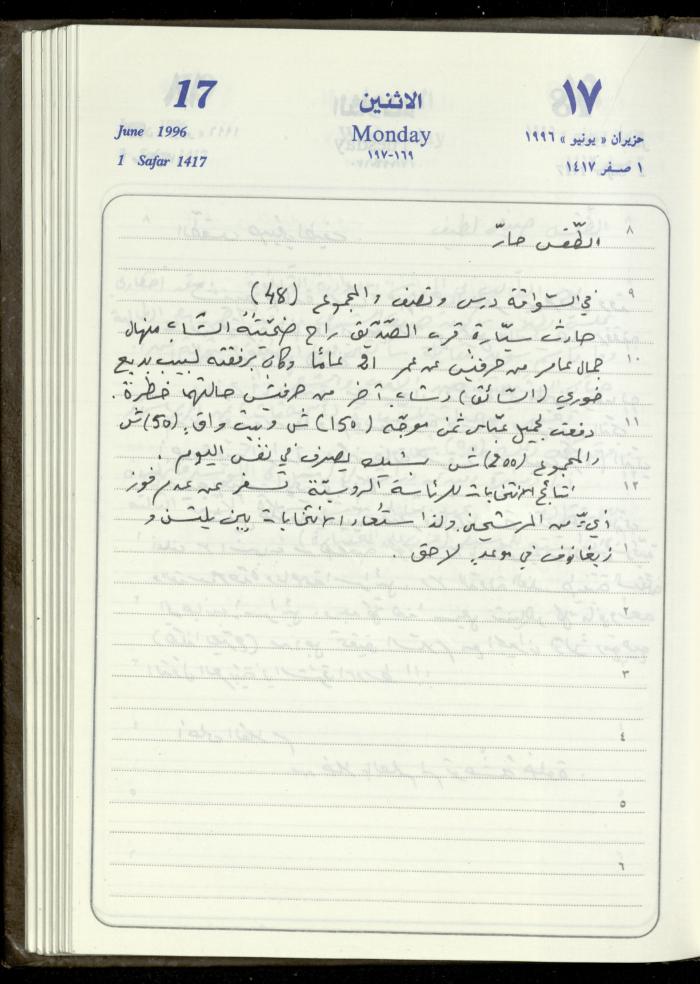 17 الاثنين ١٧
June 1996 Monday حزيران « يونيو » ١٩٩٦
1 Safar 1417 ١٩٧-١٦٩ ١ صفر ١٤١٧
٨ الطّقس حارّ
٩ في السّواقة درس ونصف والمجموع (48)
حادث سيّارة قرب الصّدّيق راح ضحيّتهُ الشّاب منهال
١٠ جمال عامر من حرفيش عن عمر عامًا وكان برفقته لبيب بديع
خوري (السّائق) وشاب آخر من حرفيش حالتهما خطرة .
١١ دفعت لجميل عبّاس ثمن موجّه (150) ش وبيت واقٍ (50) ش
والمجموع (200) ش بشيك يصرف في نفس اليوم .
١٢ نتائج الانتخابات للرئاسة الروسيّة تسفر عن عدم فوز
أيٍّ من المرشحين ولذا ستُعاد الانتخابات بين يلتسن و
١ زيغانوف في موعدٍ لاحق .
٢
٣
٤
٥
٦